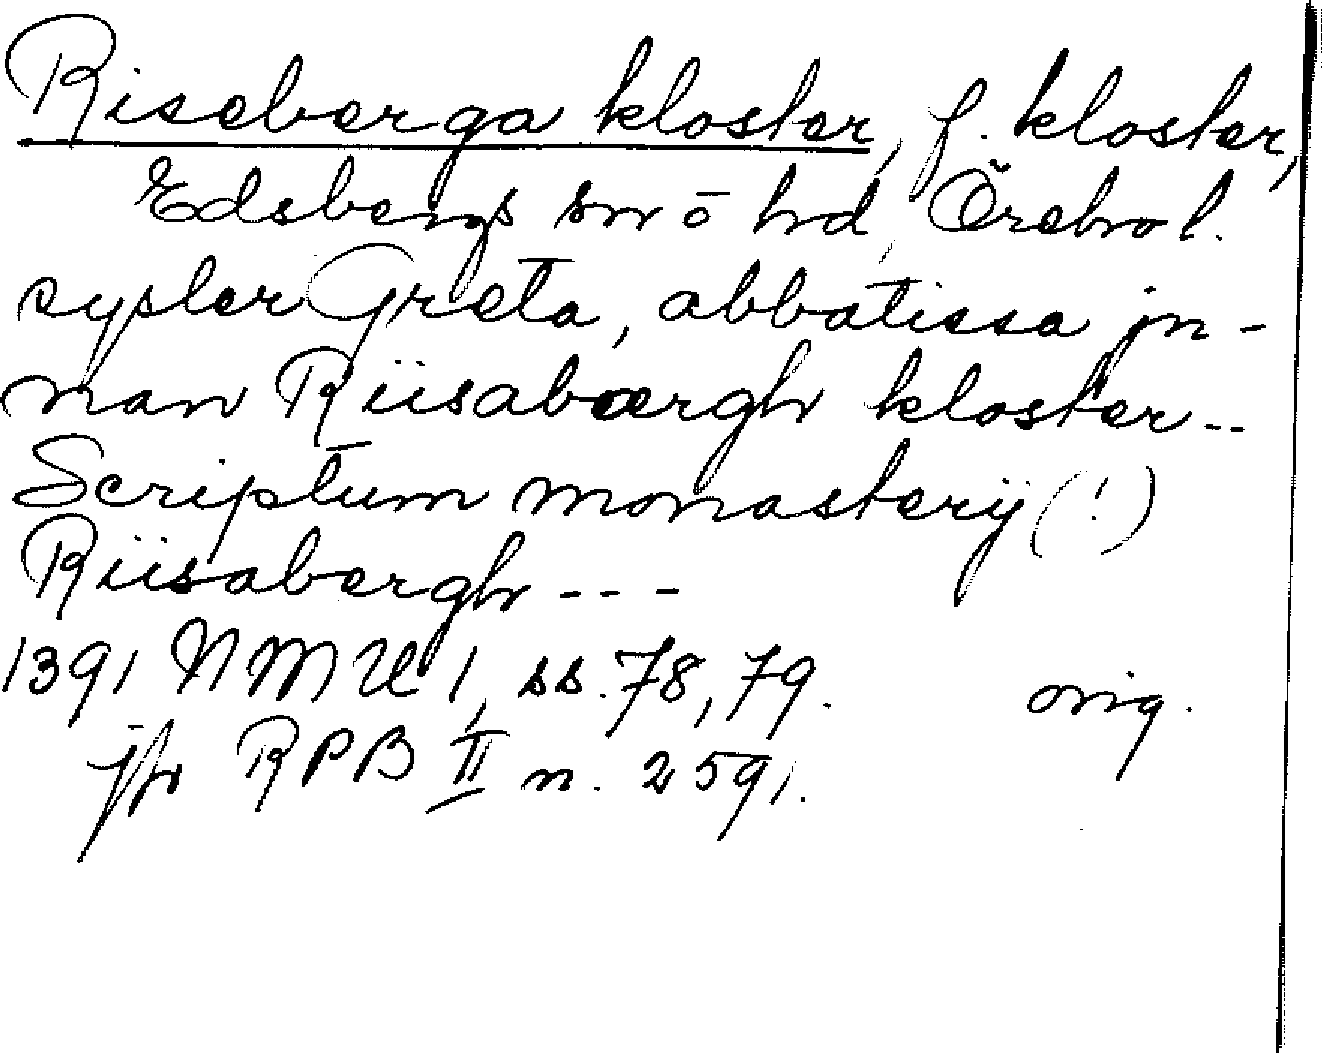 Riseberga kloster, f. kloster,
Edsbergs sn o hd, Örebro l.
syster Greta, abbatissa jn-
nan Riisabærgh kloster--
Scriptum monasterij (!)
Riisabergh ---
1391 NMU 1, ss. 78, 79. orig.
jfr RPB II n. 2591.